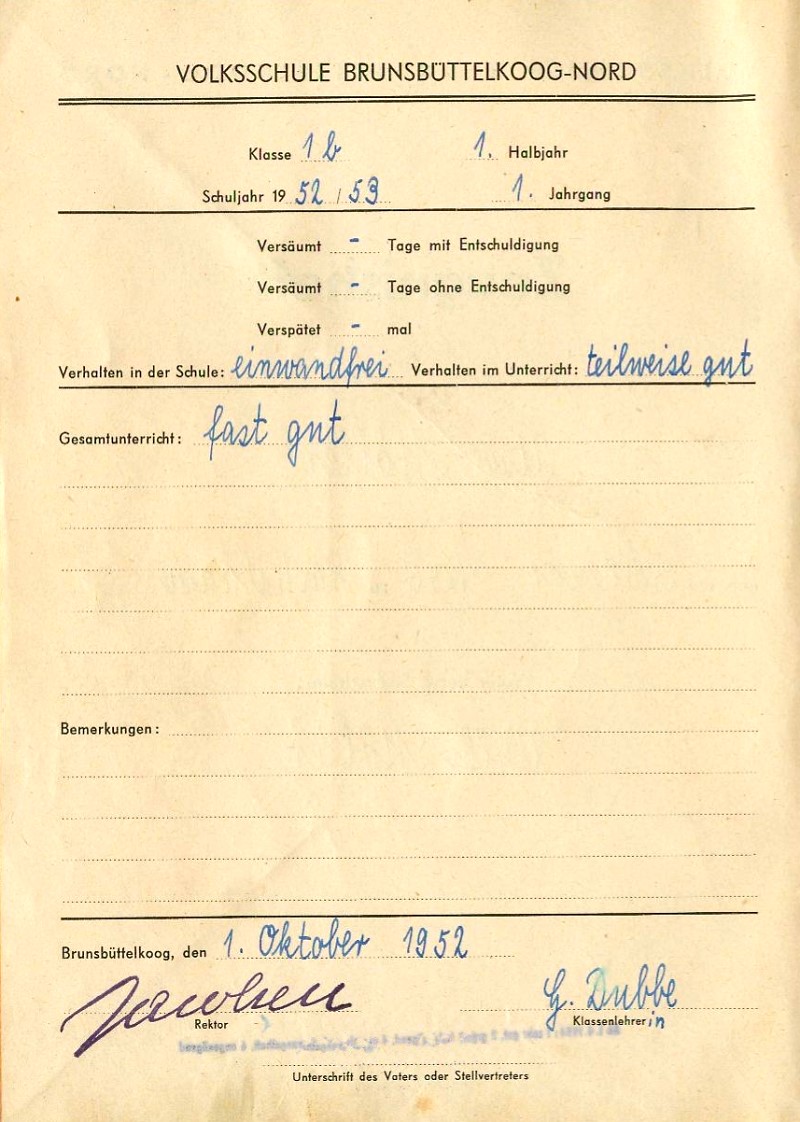 VOLKSSCHULE BRUNSBÜTTELKOOG-NORD
Klasse 1 b 1. Halbjahr
Schuljahr 19 52 / 53 1. Jahrgang
Versäumt - Tage mit Entschuldigung
Versäumt - Tage ohne Entschuldigung
Verspätet - mal
Verhalten in der Schule: einwandfrei Verhalten im Unterricht: teilweise gut
Gesamtunterricht: fast gut
Bemerkungen:
Brunsbüttelkoog, den 1. Oktober 1952
G. Dubbe
Rektor Klassenlehrerin
Unterschrift des Vaters oder Stellvertreters